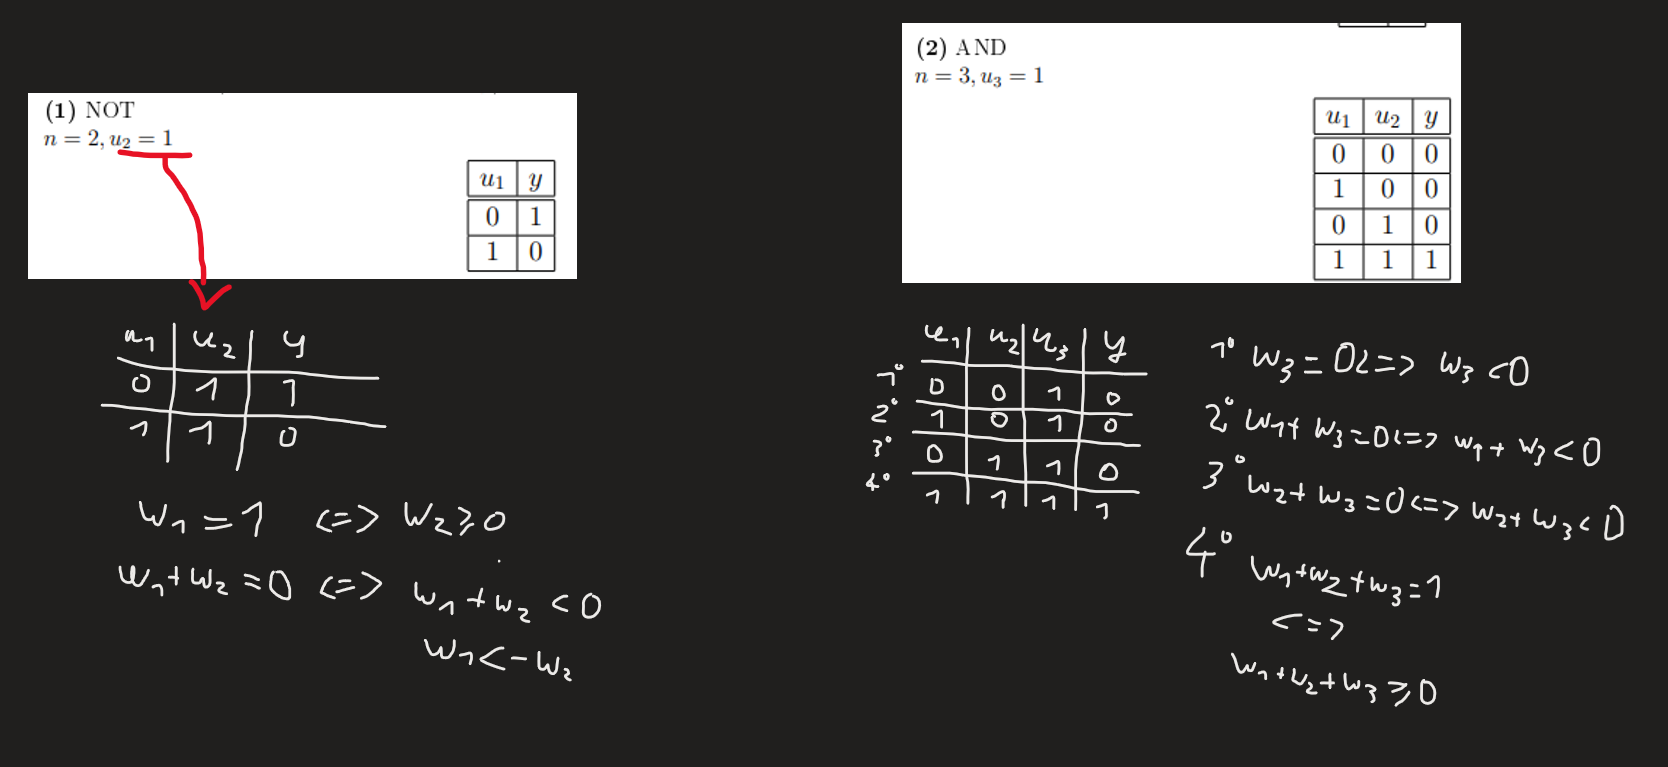 (1) NOT
n = 2, u₂ = 1
u₁ y
0 1
1 0
u₁ u₂ y
0 1 1
1 1 0
w₁ = 1 <=> w₂ ≥ 0
w₁ + w₂ = 0 <=> w₁ + w₂ < 0
w₁ < - w₂
(2) AND
n = 3, u₃ = 1
u₁ u₂ y
0 0 0
1 0 0
0 1 0
1 1 1
u₁ u₂ u₃ y
1° 0 0 1 0
2° 1 0 1 0
3° 0 1 1 0
4° 1 1 1 1
1° w₃ = 0 <=> w₃ < 0
2° w₁ + w₃ = 0 <=> w₁ + w₃ < 0
3° w₂ + w₃ = 0 <=> w₂ + w₃ < 0
4° w₁ + w₂ + w₃ = 1
<=>
w₁ + w₂ + w₃ ≥ 0